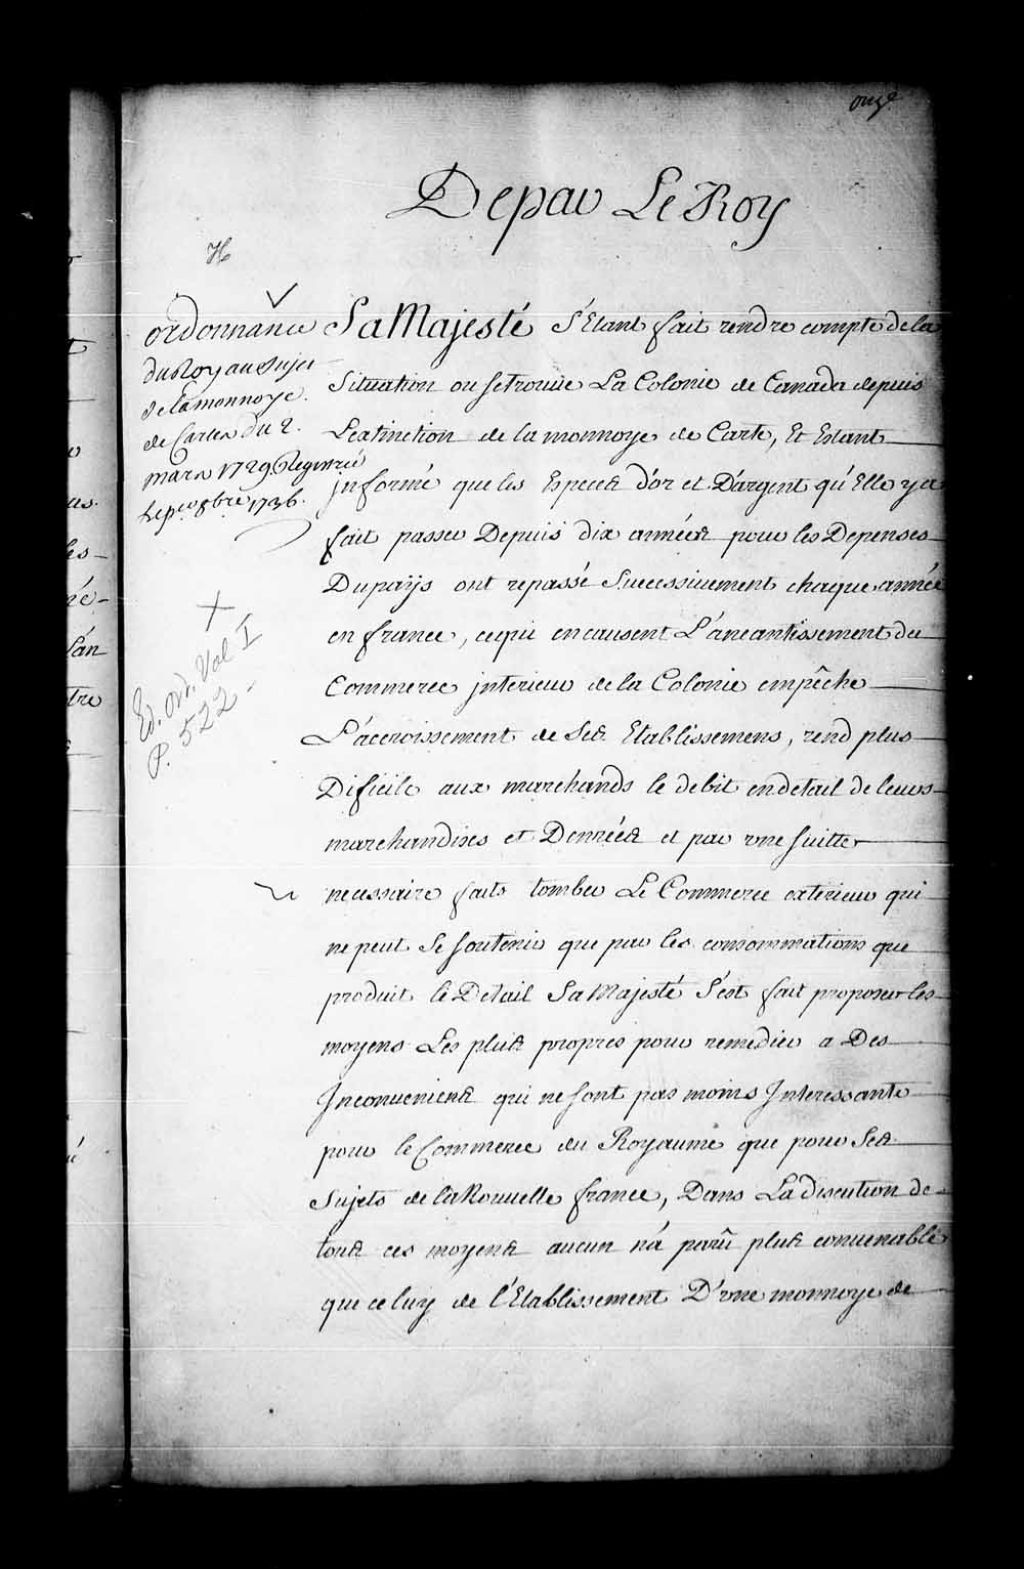 onze
Depar Le Roy
H
ordonnance
du Roy au Sujet
de la monnoye
de Cartes du 2.
mars 1729. Registrée
le per 8bre 1736.
X
Ed. Ord. Vol I
P. 522
Sa Majesté S'Etant fait rendre compte de la
Situation ou se trouve La Colonie de Canada depuis
L'extinction de la monnoye de Carte, Et Estant
jnformé que les Especes d'or et D'argent qu'Elle y a
fait passer Depuis dix années pour les Depenses
Du païs ont repassé Successivement chaque année
en france, ce qui en causent L'aneantissement du
Commerce jnterieur de la Colonie empêche
L'accroissement de Ses Etablissemens, rend plus
Dificile aux marchands le debit en detail de leurs
marchandises et Denrées et par vne suitte
necessaire fait tomber Le Commerce exterieur qui
ne peut Se soutenir que par les consommations que
produit le Detail Sa Majesté S'est fait proposer les
moyens Les plus propres pour remedier a Des
Jnconueniens qui ne sont pas moins Jnteressants
pour le Commerce du Royaume que pour Ses
Sujets de la Nouuelle france, Dans La discution de
tous ces moyens aucun n'a parû plus conuenable
que celuy de l'Etablissement D'vne monnoye de